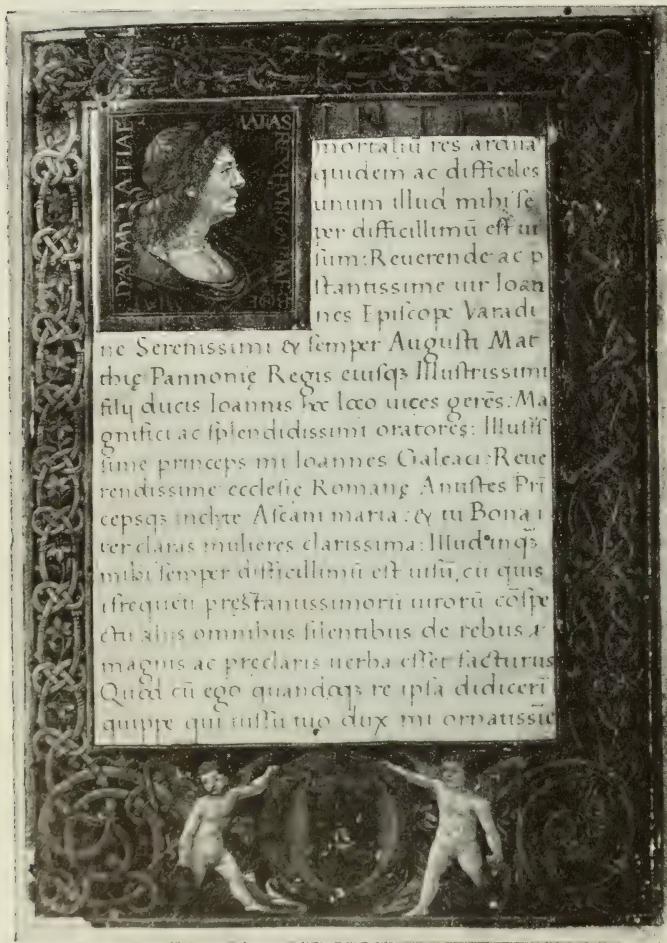 MATIAS
DALMATIAE
mortaliū res ardua
quidem ac difficiles
unum illud mihi ſe
per difficillimū eſt ui
ſum: Reuerende ac p
ſtantissime uir Ioan
nes Epiſcope Varadi
ne Serenissimi & ſemper Auguſti Mat
thię Pannonię Regis eiuſqꝫ Illuſtrissimi
filij ducis Ioannis hoc loco uices gerēs: Ma
gnifici ac ſplendidissimi oratores: Illuſtriſ
ſime princeps mi Ioannes Galeaci: Reue
rendissime eccleſie Romanę Antiſtes Prī
cepsqꝫ inclyte Aſcani maria: & tu Bona i
ter claras mulieres clarissima: Illud inqꝫ
mihi ſemper difficillimū eſt uiſū, cū quis
ifrequēti pręſtantissimorū uirorū cōſpe
ctu alijs omnibus ſilentibus de rebus
magnis ac preclaris uerba eſſet facturus
Quod cū ego quandoqꝫ re ipſa didicerī
quippe qui iuſſu tuo dux mi ornatissīe